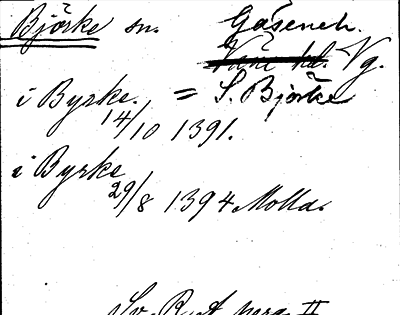 Björke sn. Gäseneh.
Väne hd. Vg.
i Byrke. = S. Björke
14/10 1391.
i Byrke
29/8 1394 Molla.
Sv. Rust perg. II